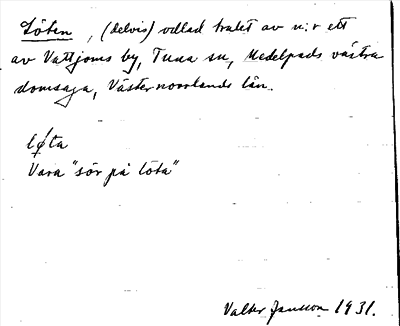 Löten, (delvis) odlad trakt av n:r ett
av Vattjoms by, Tuna sn, Medelpads västra
domsaga, Västernorrlands län.
lǿta
Vara "sör på löta"
Valter Jansson 1931.